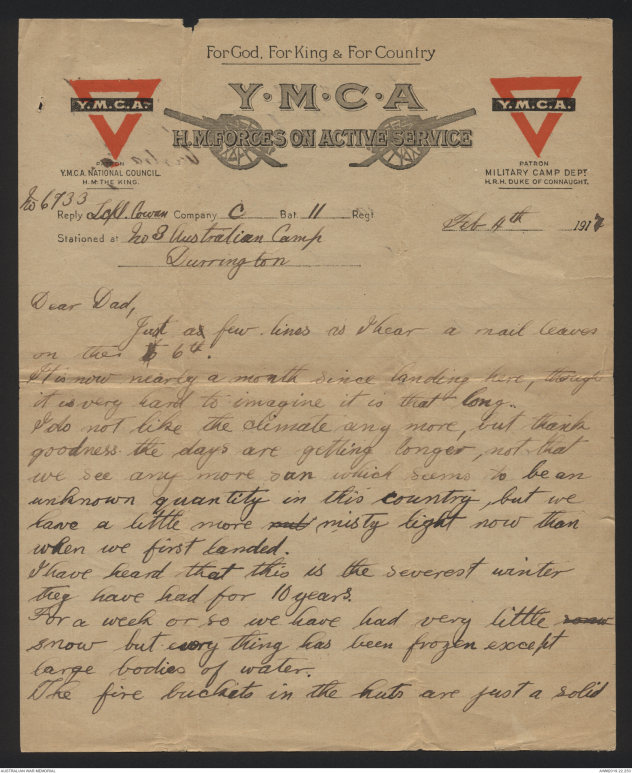 For God, For King & For Country
Y·M·C·A
H.M. FORCES ON ACTIVE SERVICE
Y.M.C.A.
PATRON
Y.M.C.A. NATIONAL COUNCIL.
H.M. THE KING.
Y.M.C.A.
PATRON
MILITARY CAMP DEPT
H.R.H. DUKE OF CONNAUGHT.
No 6733
Reply L Cpl. Cowan Company C Bat. 11 Regt
Stationed at No 8 Australian Camp
Durrington
Feb 4th 1917
Dear Dad,
Just a few lines as I hear a mail leaves
on the 6th.
It is now nearly a month since landing here, though
it is very hard to imagine it is that long.
I do not like the climate any more, but thank
goodness the days are getting longer, not that
we see any more sun which seems to be an
unknown quantity in this country, but we
have a little more misty light now than
when we first landed.
I have heard that this is the severest winter
they have had for 10 years.
For a week or so we have had very little
snow but every thing has been frozen except
large bodies of water.
The fire buckets in the huts are just a solid
AUSTRALIAN WAR MEMORIAL